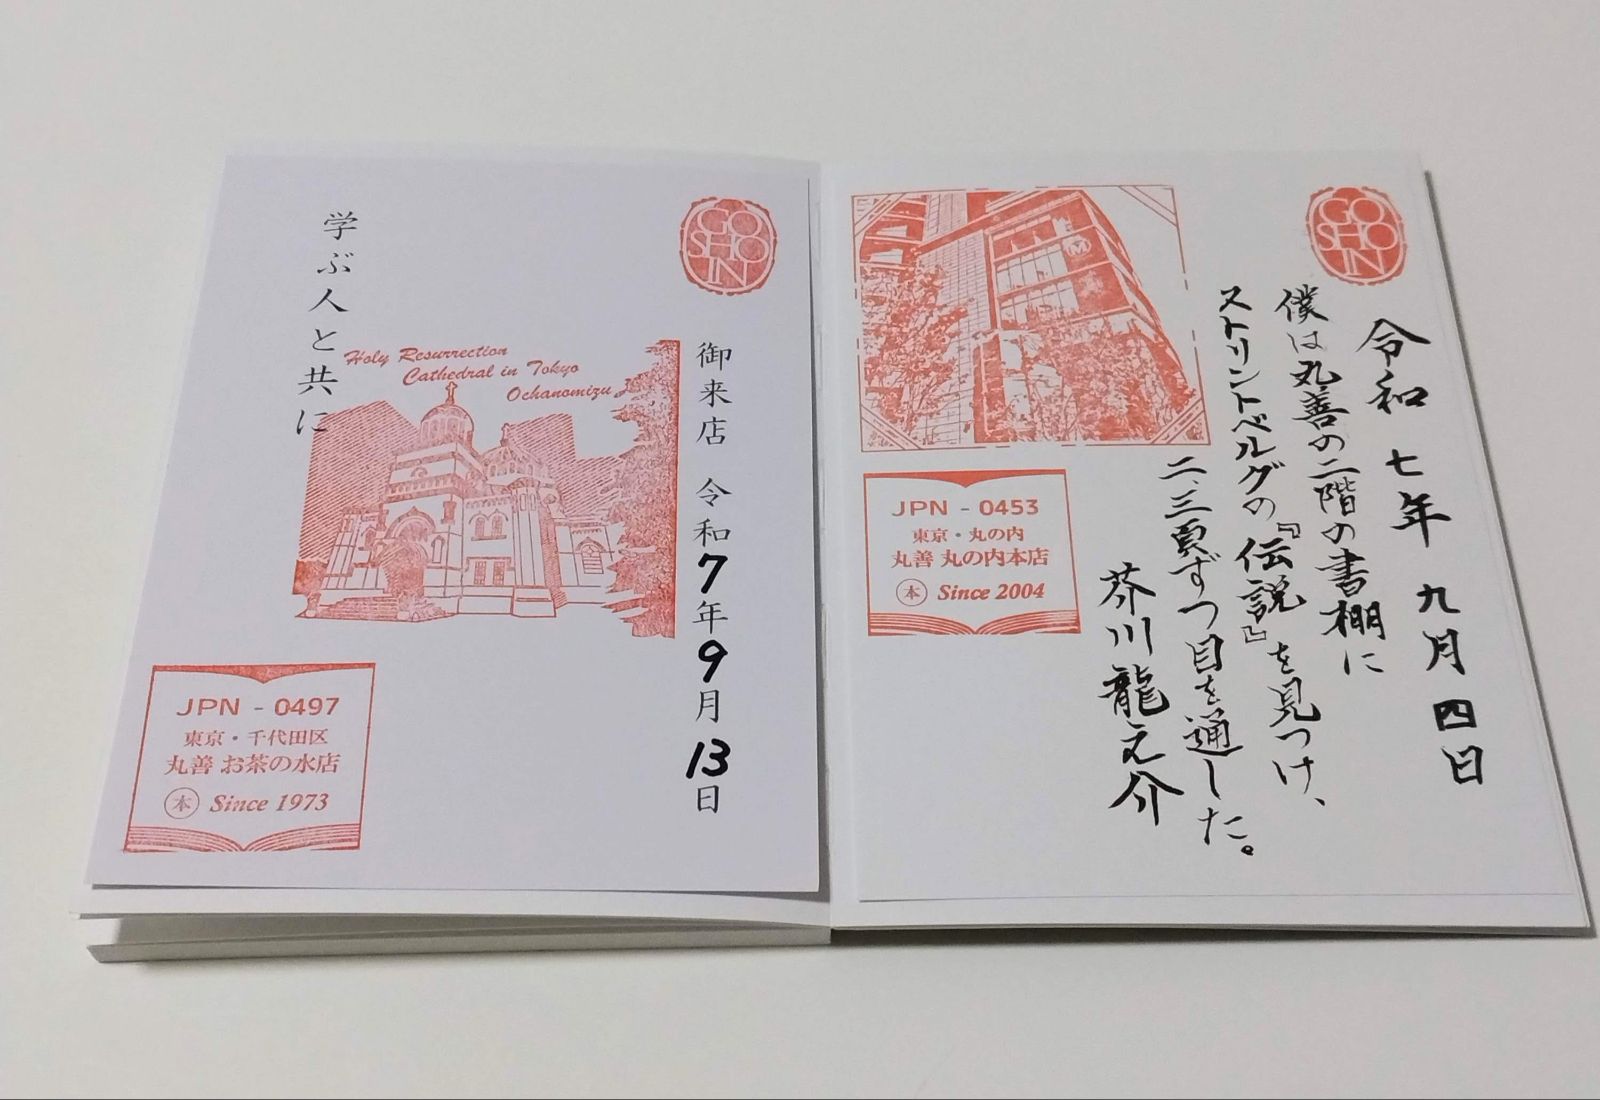 学ぶ人と共に
GO
SHO
IN
Holy Resurrection
Cathedral in Tokyo
Ochanomizu
御来店 令和7年9月13日
JPN - 0497
東京・千代田区
丸善 お茶の水店
本 Since 1973
GO
SHO
IN
令和七年 九月四日
僕は丸善の二階の書棚に
ストリントベルグの『伝説』を見つけ、
二、三頁ずつ目を通した。
芥川龍之介
M
JPN - 0453
東京・丸の内
丸善 丸の内本店
本 Since 2004